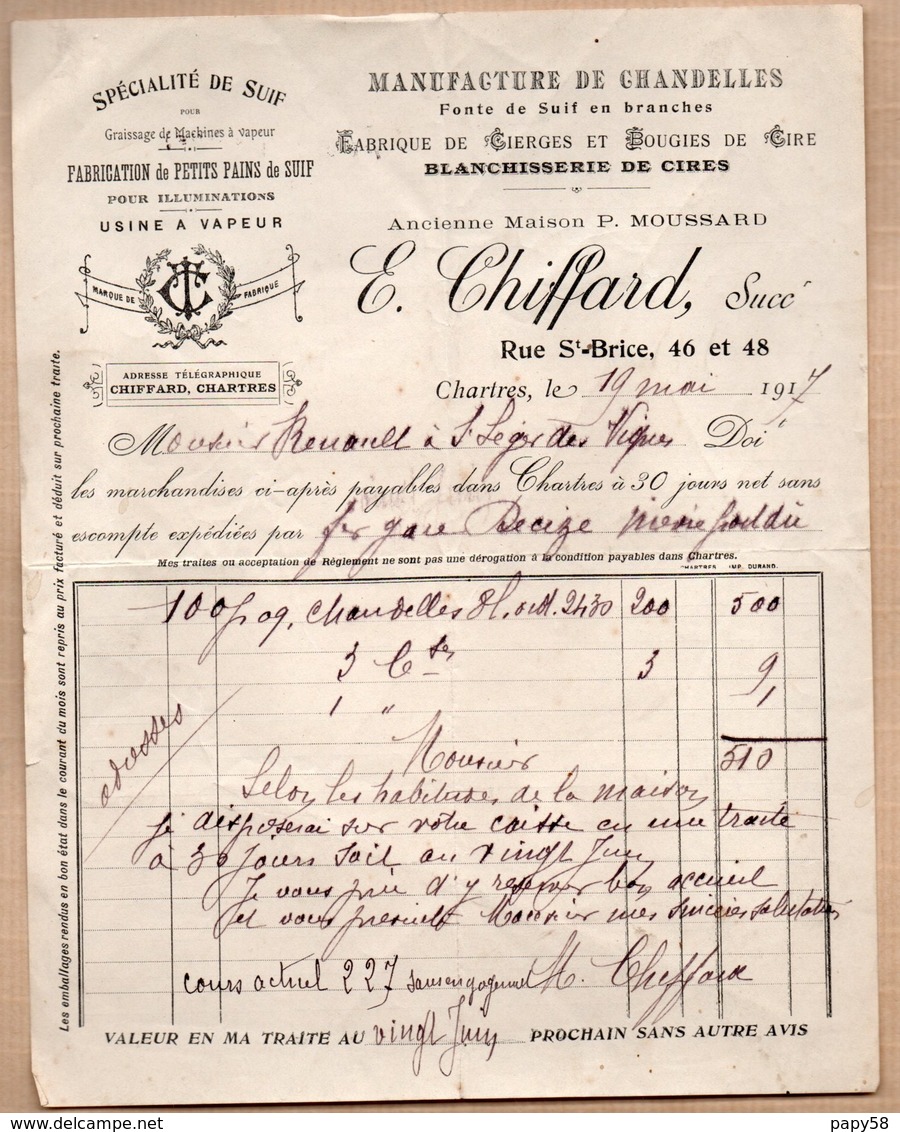 SPÉCIALITÉ DE SUIF
POUR
Graissage de Machines à vapeur
FABRICATION de PETITS PAINS de SUIF
POUR ILLUMINATIONS
USINE A VAPEUR
MARQUE DE FABRIQUE
ADRESSE TÉLÉGRAPHIQUE
CHIFFARD, CHARTRES
MANUFACTURE DE CHANDELLES
Fonte de Suif en branches
FABRIQUE DE CIERGES ET BOUGIES DE CIRE
BLANCHISSERIE DE CIRES
Ancienne Maison P. MOUSSARD
E. Chiffard, Succr
Rue St-Brice, 46 et 48
Chartres, le 19 mai 1917
Monsieur Renault à St Léger des Vignes Doit
les marchandises ci-après payables dans Chartres à 30 jours net sans
escompte expédiées par fer gare Decize
Mes traites ou acceptation de Réglement ne sont pas une dérogation à la condition payables dans Chartres.
CHARTRES IMP. DURAND.
100 Chandelles 8 ord. 2430 200 500
3 Cses 3 9
1 " 1
adresses
Monsieur 510
Selon les habitudes de la maison
je disposerai sur votre caisse en une traite
à 30 jours soit au vingt Juin
Je vous prie d'y réserver bon accueil
et vous présente Monsieur mes sincères salutations
cours actuel 227 sans engagement M. Chiffard
VALEUR EN MA TRAITE AU vingt Juin PROCHAIN SANS AUTRE AVIS
Les emballages rendus en bon état dans le courant du mois sont repris au prix facturé et déduit sur prochaine traite.
papy58